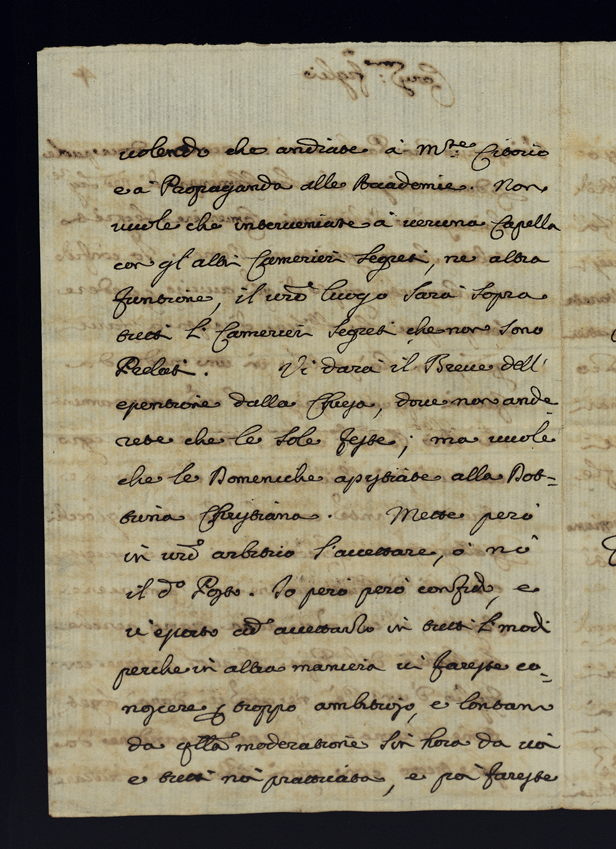 uolendo che andiate à M.te Citorio
e à Propaganda alle Accademie. Non
uuole che interueniate à ueruna Capella
con gl'altri Camerieri Segreti, ne altra
funtione, il uro luogo sarà sopra
tutti li Camerieri Segreti che non sono
Prelati. Vi darà il Breue dell'
esentione dalla Chiesa, doue non ande
rete che le sole feste; ma uuole
che le Domeniche assistiate alla Dot=
trina Christiana. Mette però
in uro arbitrio l'accettare, ò nò
il do Posto. Io però però confido, e
u'esorto ad accettarlo in tutti li modi
perche in altra maniera ui fareste co=
noscere troppo ambitioso, e lontan
da qlla moderatione sin hora da uoi
e tutti noi pratticata, e poi fareste